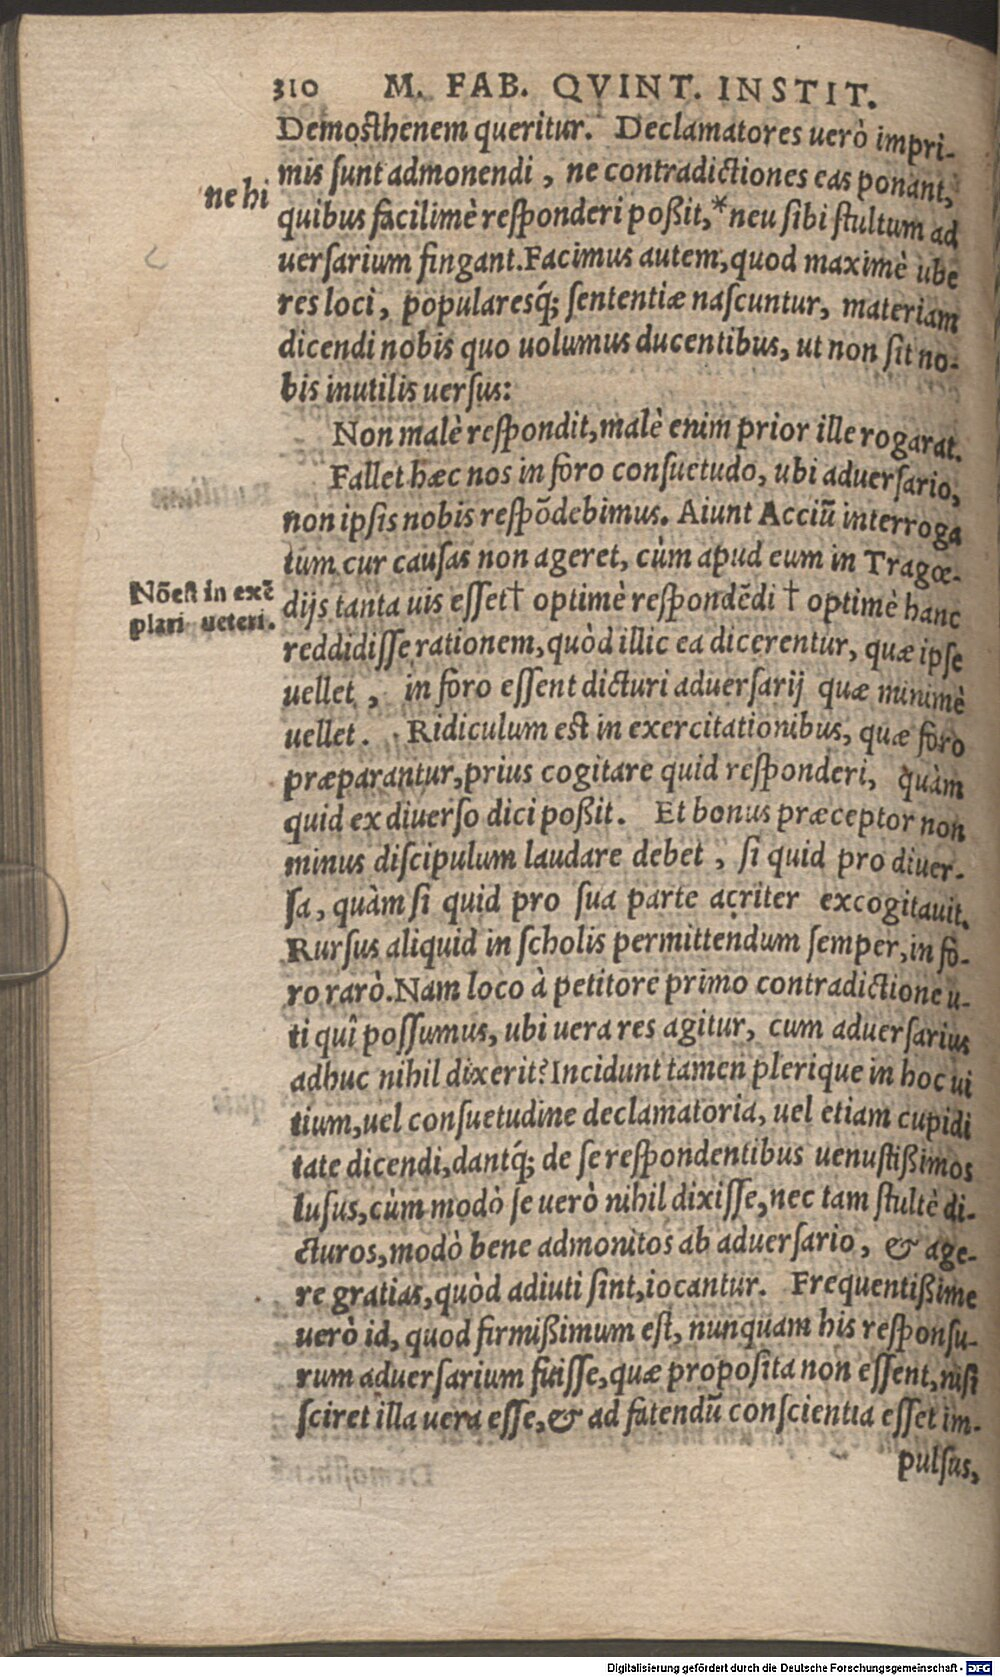 310 M. FAB. QVINT. INSTIT.
Demosthenem queritur. Declamatores uerò impri-
mis ſunt admonendi, ne contradictiones eas ponant,
ne hi
quibus facilimè reſponderi poßit,* neu ſibi ſtultum ad
uerſarium fingant. Facimus autem, quod maximè ube
res loci, popularesq́; ſententiæ naſcuntur, materiam
dicendi nobis quo uolumus ducentibus, ut non ſit no-
bis inutilis uerſus:
Non malè reſpondit, malè enim prior ille rogarat.
Fallet hæc nos in foro conſuetudo, ubi aduerſario,
non ipſis nobis reſpōdebimus. Aiunt Acciū interroga
tum cur cauſas non ageret, cùm apud eum in Tragœ-
Nōest in exē
plari ueteri.
dijs tanta uis eſſet† optimè reſpondēdi † optimè hanc
reddidiſſe rationem, quòd illic ea dicerentur, quæ ipſe
uellet, in foro eſſent dicturi aduerſarij quæ minimè
uellet. Ridiculum est in exercitationibus, quæ foro
præparantur, prius cogitare quid reſponderi, quàm
quid ex diuerſo dici poßit. Et bonus præceptor non
minus diſcipulum laudare debet, ſi quid pro diuer-
ſa, quàm ſi quid pro ſua parte acriter excogitauit.
Rurſus aliquid in ſcholis permittendum ſemper, in fo-
ro rarò. Nam loco à petitore primo contradictione u-
ti quî poſſumus, ubi uera res agitur, cum aduerſarius
adhuc nihil dixerit? Incidunt tamen plerique in hoc ui
tium, uel conſuetudine declamatoria, uel etiam cupidi
tate dicendi, dantq́; de ſe reſpondentibus uenuſtißimos
luſus, cùm modò ſe uerò nihil dixiſſe, nec tam ſtultè di-
cturos, modò bene admonitos ab aduerſario, & age-
re gratias, quòd adiuti ſint, iocantur. Frequentißime
uerò id, quod firmißimum eſt, nunquam his reſponſu-
rum aduerſarium fuiſſe, quæ propoſita non eſſent, niſi
ſciret illa uera eſſe, & ad fatendū conſcientia eſſet im-
pulſus,
Digitalisierung gefördert durch die Deutsche Forschungsgemeinschaft - DFG